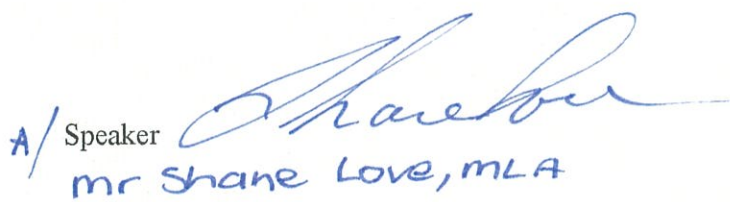 A/ Speaker Shane Love
mr Shane Love, MLA